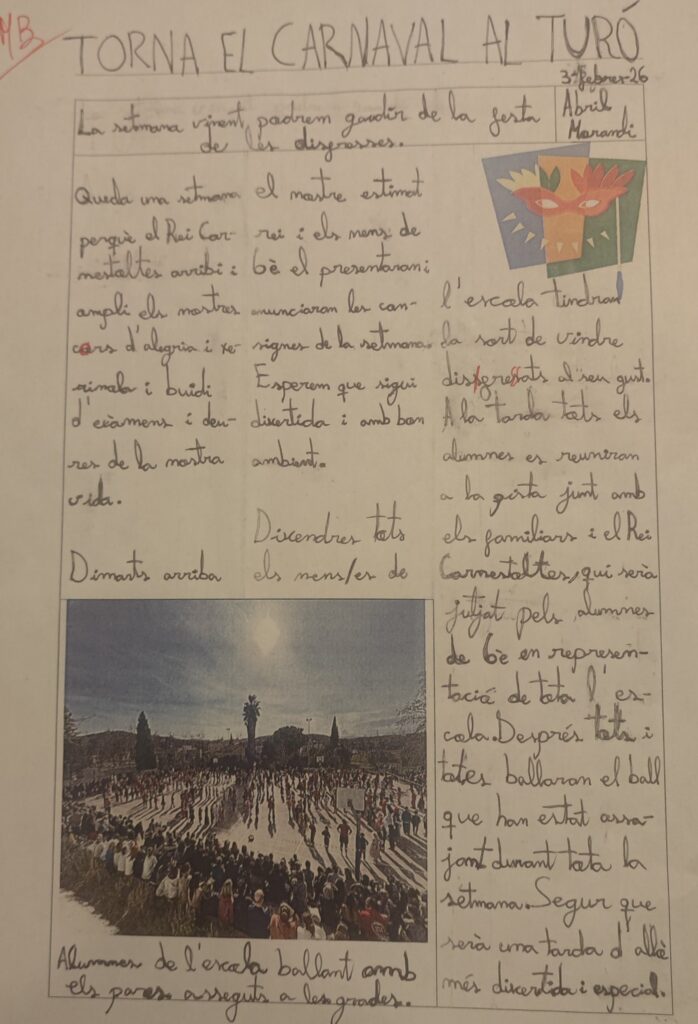 MB
TORNA EL CARNAVAL AL TURÓ
3-febrer-26
La setmana vinent, podrem gaudir de la festa
de les disfresses.
Abril
Morandi
Queda una setmana
perquè el Rei Car-
nestoltes arribi i
ampli els nostres
cors d'alegria i xe-
rinola i buidi
d'exàmens i deu-
res de la nostra
vida.
Dimarts arriba
el nostre estimat
rei i els nens de
6è el presentaran i
anunciaran les con-
signes de la setmana.
Esperem que sigui
divertida i amb bon
ambient.
Divendres tots
els nens/es de
l'escola tindran
la sort de vindre
disfressats al seu gust.
A la tarda tots els
alumnes es reuniran
a la pista junt amb
els familiars i el Rei
Carnestoltes, qui serà
jutjat pels alumnes
de 6è en represen-
tació de tota l'es-
cola. Després tots i
totes ballaran el ball
que han estat assa-
jant durant tota la
setmana. Segur que
serà una tarda d'allò
més divertida i especial.
Alumnes de l'escola ballant amb
els pares asseguts a les grades.